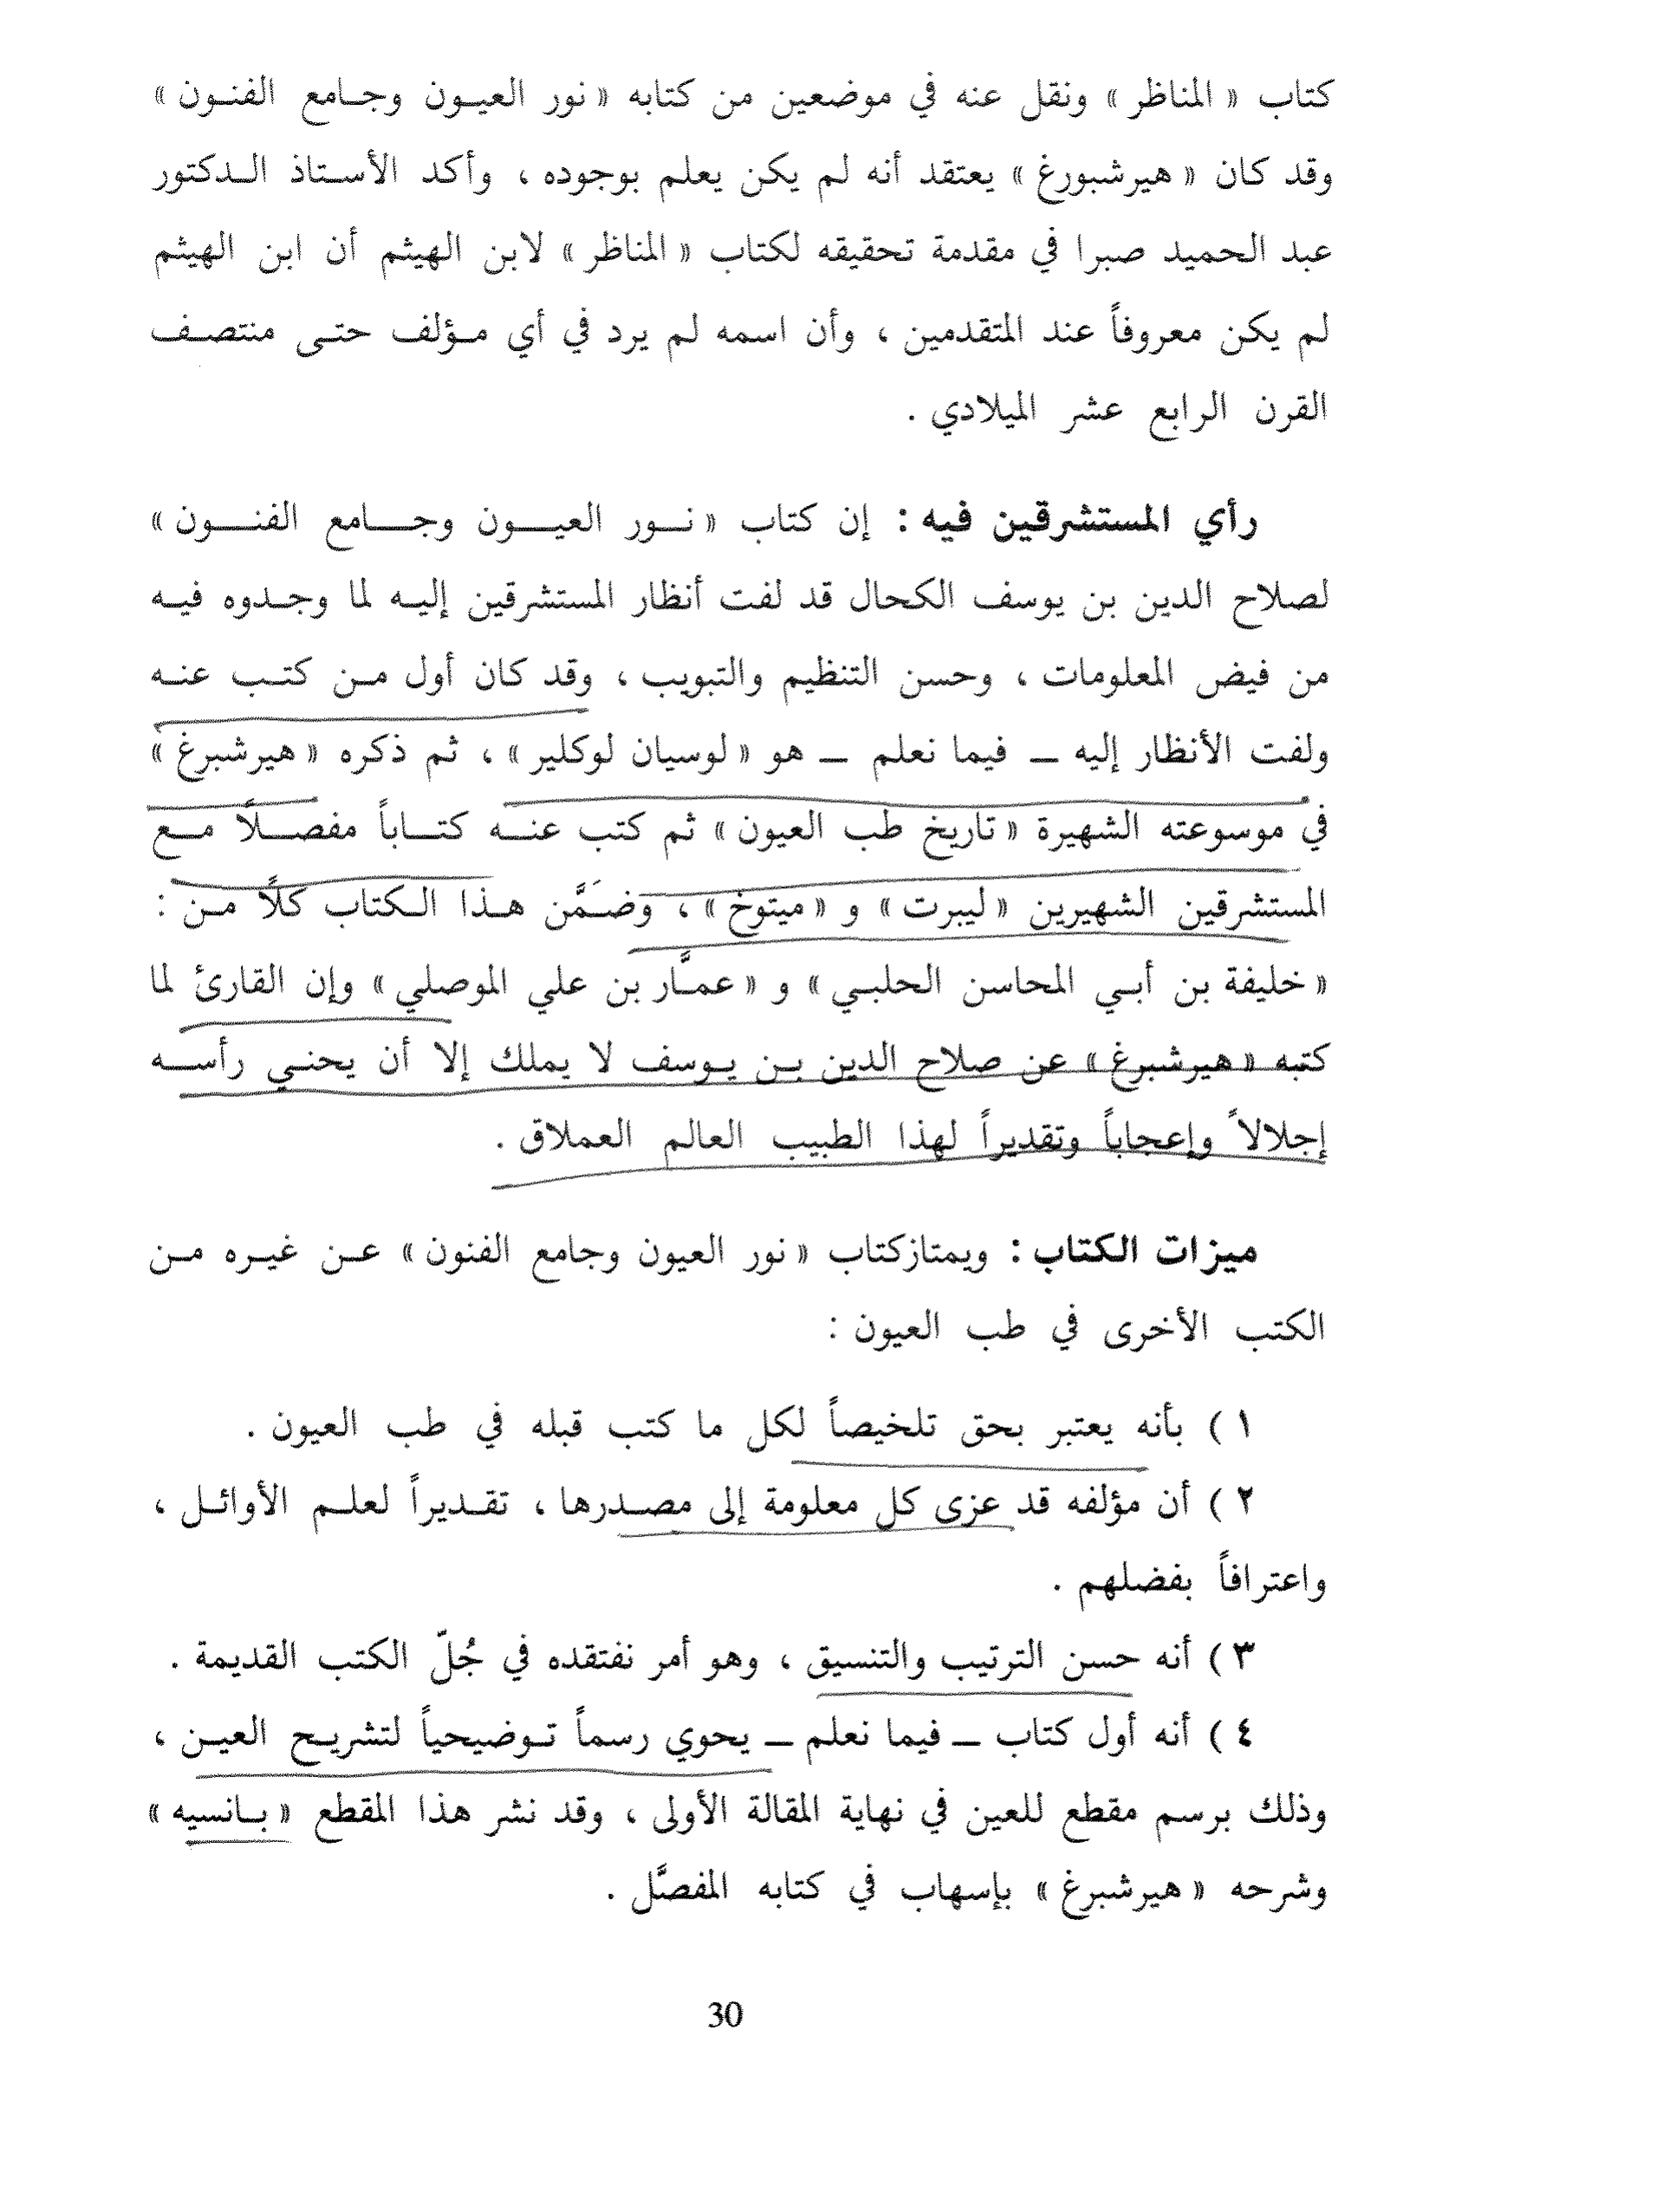 كتاب « المناظر » ونقل عنه في موضعين من كتابه « نور العيون وجامع الفنون »
وقد كان « هيرشبورغ » يعتقد أنه لم يكن يعلم بوجوده ، وأكد الأستاذ الدكتور
عبد الحميد صبرا في مقدمة تحقيقه لكتاب « المناظر » لابن الهيثم أن ابن الهيثم
لم يكن معروفاً عند المتقدمين ، وأن اسمه لم يرد في أي مؤلف حتى منتصف
القرن الرابع عشر الميلادي .
رأي المستشرقين فيه : إن كتاب « نور العيون وجامع الفنون »
لصلاح الدين بن يوسف الكحال قد لفت أنظار المستشرقين إليه لما وجدوه فيه
من فيض المعلومات ، وحسن التنظيم والتبويب ، وقد كان أول من كتب عنه
ولفت الأنظار إليه ــ فيما نعلم ــ هو « لوسيان لوكلير » ، ثم ذكره « هيرشبرغ »
في موسوعته الشهيرة « تاريخ طب العيون » ثم كتب عنه كتاباً مفصلاً مع
المستشرقين الشهيرين « ليبرت » و « ميتوخ » ، وضَمَّن هذا الكتاب كلاً من :
« خليفة بن أبي المحاسن الحلبي » و « عمَّار بن علي الموصلي » وإن القارئ لما
كتبه « هيرشبرغ » عن صلاح الدين بن يوسف لا يملك إلا أن يحني رأسه
إجلالاً وإعجاباً وتقديراً لهذا الطبيب العالم العملاق .
ميزات الكتاب : ويمتازكتاب « نور العيون وجامع الفنون » عن غيره من
الكتب الأخرى في طب العيون :
١ ) بأنه يعتبر بحق تلخيصاً لكل ما كتب قبله في طب العيون .
٢ ) أن مؤلفه قد عزى كل معلومة إلى مصدرها ، تقديراً لعلم الأوائل ،
واعترافاً بفضلهم .
٣ ) أنه حسن الترتيب والتنسيق ، وهو أمر نفتقده في جُلّ الكتب القديمة .
٤ ) أنه أول كتاب ــ فيما نعلم ــ يحوي رسماً توضيحياً لتشريح العين ،
وذلك برسم مقطع للعين في نهاية المقالة الأولى ، وقد نشر هذا المقطع « بانسيه »
وشرحه « هيرشبرغ » بإسهاب في كتابه المفصَّل .
30